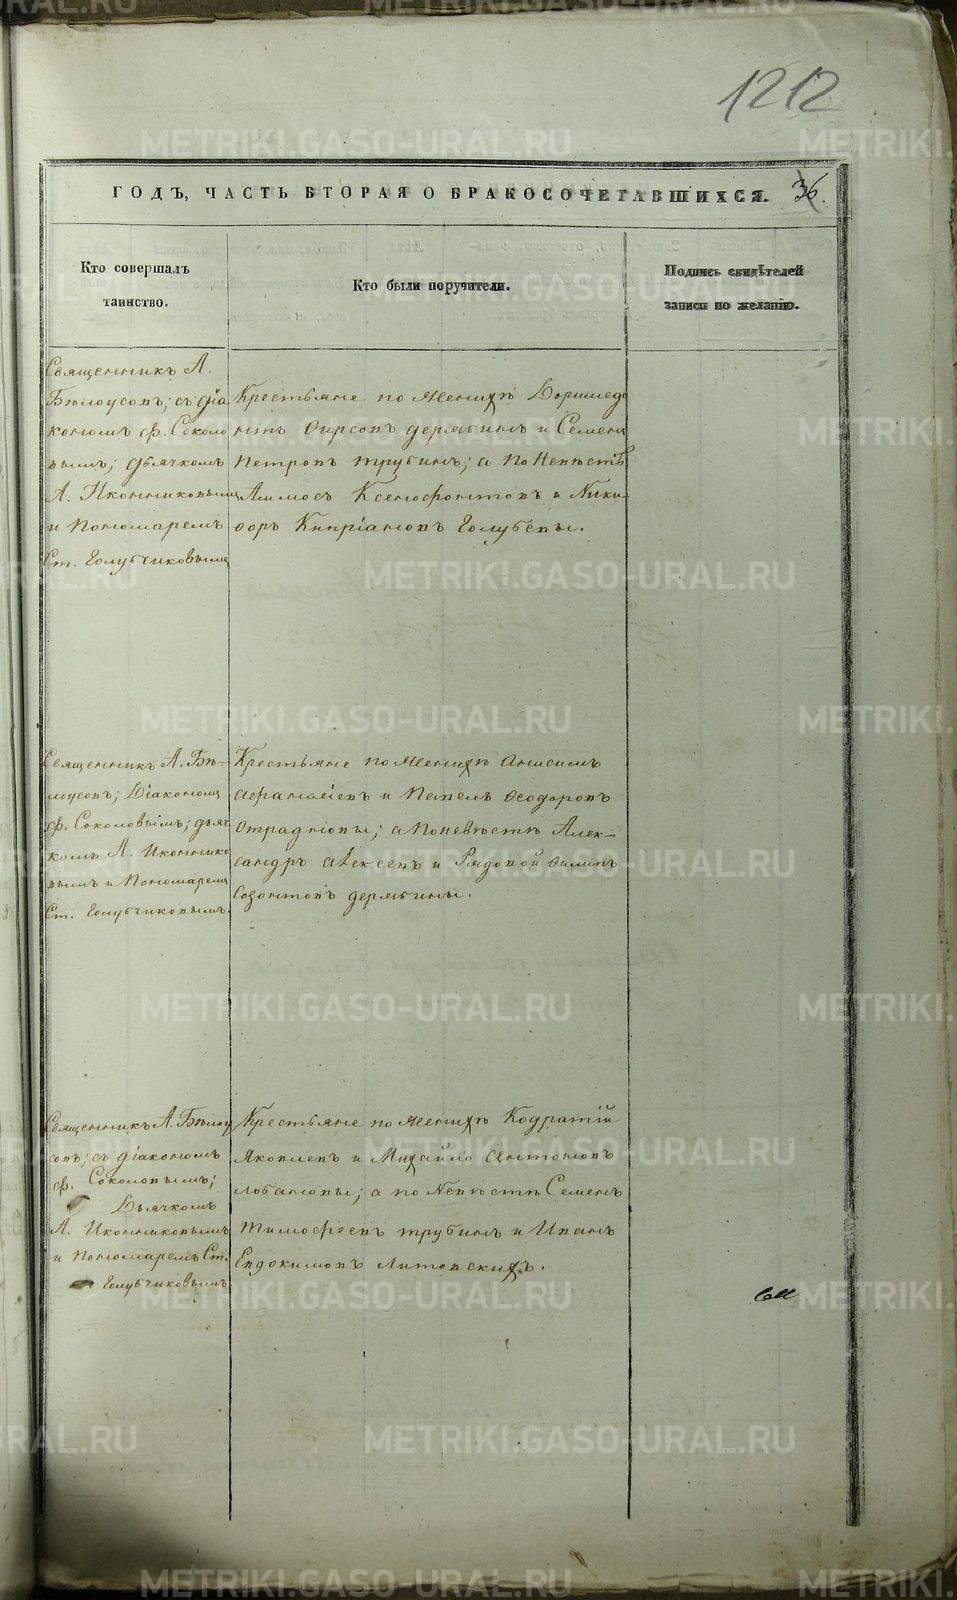 1212
ГОДЪ, ЧАСТЬ ВТОРАЯ О БРАКОСОЧЕТАВШИХСЯ. 36.
Кто совершалъ
таинство.
Кто были поручители.
Подпись свидѣтелей
записи по желанію.
Священникъ А.
Бѣлоусовъ; съ діа
кономъ Ф. Соколо
вымъ; дьячкомъ
А. Иконниковымъ
и Пономаремъ
Ст. Голубчиковымъ
Крестьяне по Женихѣ Доримедо
нтъ Фирсовъ дерябинъ и Семенъ
Петровъ трубинъ; а по Невѣстѣ
Аммосъ Ксенофонтовъ и Ники-
форъ Кипріановъ Голубевы.
Священникъ А. Бѣ-
лоусовъ; Діакономъ
Ф. Соколовымъ; дьяч
комъ А. Иконнико
вымъ и Пономаремъ
Ст. Голубчиковымъ.
Крестьяне по Женихѣ Онисимъ
Афанасіевъ и Павелъ Феодоровъ
Отрадновы; а По невѣстѣ Алек-
сандръ Алексеевъ и Рядовой Филипъ
Созонтовъ дерябины.
Священникъ А. Бѣлоу
совъ; съ діакономъ
Ф. Соколовымъ;
Дьячкомъ
А. Иконниковымъ
и Пономаремъ Ст.
Голубчиковымъ
Крестьяне по Женихѣ Кодратій
Яковлевъ и Михайло Антоновъ
лобановы; а по Невѣстѣ Семенъ
Тимофеевъ трубинъ и Иванъ
Евдокимовъ Литовскихъ.
METRIKI.GASO-URAL.RU